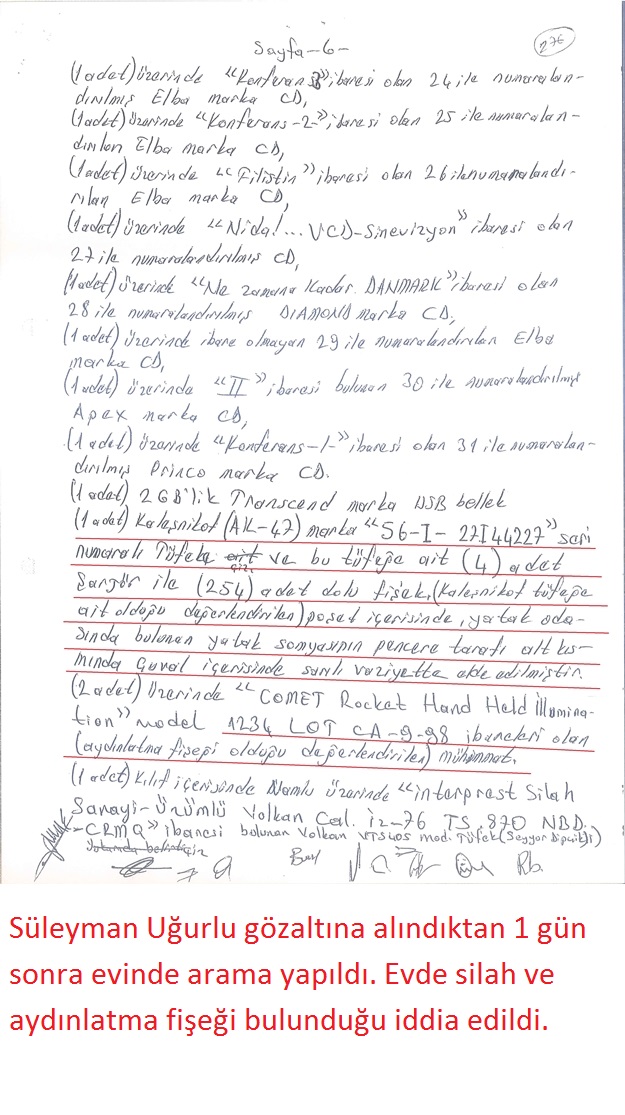 Sayfa-6-
276
(1 adet) üzerinde "Konferans 3" ibaresi olan 24 ile numaralan-
dırılmış Elba marka CD,
(1 adet) üzerinde "Konferans-2-" ibaresi olan 25 ile numaralan-
dırılan Elba marka CD,
(1 adet) üzerinde "Filistin" ibaresi olan 26 ile numaralandı-
rılan Elba marka CD,
(1 adet) üzerinde "Nida!... VCD-Sinevizyon" ibaresi olan
27 ile numaralandırılmış CD,
(1 adet) üzerinde "Ne zamana Kadar DANMARK" ibaresi olan
28 ile numaralandırılmış DIAMOND marka CD,
(1 adet) üzerinde ibare olmayan 29 ile numaralandırılan Elba
marka CD,
(1 adet) üzerinde "II" ibaresi bulunan 30 ile numaralandırılmış
Apex marka CD,
(1 adet) üzerinde "Konferans-1-" ibaresi olan 31 ile numaralan-
dırılmış Princo marka CD.
(1 adet) 2GB'lik Transcend marka USB bellek
(1 adet) Kaleşnikof (AK-47) marka "56-I-27I44227" seri
numaralı Tüfek ait ve bu tüfeğe ait (4) adet
Şarjör ile (254) adet dolu fişek, (Kaleşnikof tüfeğe
ait olduğu değerlendirilen) poşet içerisinde, yatak oda-
sında bulunan yatak somyasının pencere tarafı alt kıs-
mında çuval içerisinde sarılı vaziyette elde edilmiştir.
(2 adet) üzerinde "COMET Rocket Hand Held İllumina-
tion" model 1234 LOT CA-9-98 ibareleri olan
(aydınlatma fişeği olduğu değerlendirilen) mühimmat.
(1 adet) Kılıf içerisinde Namlu üzerinde "interprest Silah
Sanayi-Üzümlü Volkan Cal. 12-76 TS.870 NBD.
-CRMQ" ibaresi bulunan Volkan VTS40S mod. Tüfek (Seyyar Dipçikli)
Süleyman Uğurlu gözaltına alındıktan 1 gün
sonra evinde arama yapıldı. Evde silah ve
aydınlatma fişeği bulunduğu iddia edildi.